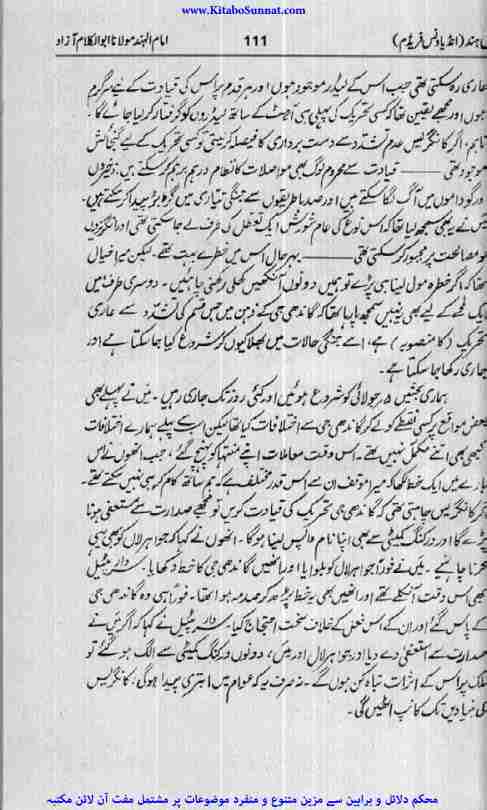 www.KitaboSunnat.com
ہند (انڈیا ونس فریڈم) 111 امام الہند مولانا ابوالکلام آزاد
جاری رہ سکتی تھی جب اس کے لیڈر موجود ہوں اور ہر قدم پر اس کی قیادت کے لیے سرگرم
ہوں اور مجھے یقین تھا کہ کسی تحریک کی پہلی ہی آہٹ کے ساتھ لیڈروں کو گرفتار کر لیا جائے گا۔
تاہم، اگر کانگریس عدم تشدد سے دست برداری کا فیصلہ کر لیتی تو کسی تحریک کے لیے گنجائش
موجود تھی ——— قیادت سے محروم لوگ بھی مواصلات کا نظام درہم برہم کر سکتے ہیں، ذخیروں
ور گوداموں میں آگ لگا سکتے ہیں اور صدہا طریقوں سے جنگی تیاری میں گڑبڑ پیدا کر سکتے ہیں۔
یں نے یہ بھی سمجھ لیا تھا کہ اس نوع کی عام شورش ایک تعطل کی طرف لے جا سکتی تھی اور انگریزوں
کو مصالحت پر مجبور کر سکتی تھی ——— بہرحال اس میں خطرے بہت تھے۔ لیکن میرا خیال
تھا کہ اگر خطرہ مول لینا ہی پڑے تو ہمیں دونوں آنکھیں کھلی رکھنی چاہئیں۔ دوسری طرف میں
ایک لمحے کے لیے بھی یہ نہیں سمجھ پایا تھا کہ گاندھی جی کے ذہن میں جس قسم کی تشدد سے عاری
تحریک (کا منصوبہ) ہے، اسے جنگی حالات میں بھلا کیوں کر شروع کیا جا سکتا ہے اور
جاری رکھا جا سکتا ہے۔
ہماری بحثیں ۵ جولائی کو شروع ہوئیں اور کئی روز تک جاری رہیں۔ میں نے پہلے بھی
بعض مواقع پر کسی نقطے کو لے کر گاندھی جی سے اختلافات کیا تھا لیکن اس سے پہلے ہمارے اختلافات
کبھی بھی اتنے مکمل نہیں تھے۔ اس وقت معاملات اپنے منتہا کو پہنچ گئے، جب انھوں نے اس
بارے میں ایک خط لکھا کہ میرا موقف ان سے اس قدر مختلف ہے کہ ہم ساتھ کام کر ہی نہیں سکتے تھے۔
اگر کانگریس چاہتی تھی کہ گاندھی جی تحریک کی قیادت کریں تو مجھے صدارت سے مستعفی ہونا
پڑے گا اور ورکنگ کمیٹی سے بھی اپنا نام واپس لینا ہوگا۔ انھوں نے کہا کہ جواہر لال کو بھی یہی
کرنا چاہیے۔ میں نے فوراً جواہر لال کو بلوایا اور انھیں گاندھی جی کا خط دکھایا۔ سردار پٹیل
بھی اس وقت آ نکلے تھے اور انھیں بھی یہ خط پڑھ کر صدمہ ہوا تھا۔ فوراً ہی وہ گاندھی جی
کے پاس گئے اور ان کے اس فعل کے خلاف سخت احتجاج کیا۔ سردار پٹیل نے کہا کہ اگر میں نے
صدارت سے استعفیٰ دے دیا اور جواہر لال اور میں، دونوں ورکنگ کمیٹی سے الگ ہو گئے تو
ملک پر اس کے اثرات تباہ کن ہوں گے۔ نہ صرف یہ کہ عوام میں ابتری پیدا ہوگی، کانگریس
کی بنیادیں تک کانپ اٹھیں گی۔
محکم دلائل و براہین سے مزین متنوع و منفرد موضوعات پر مشتمل مفت آن لائن مکتبہ